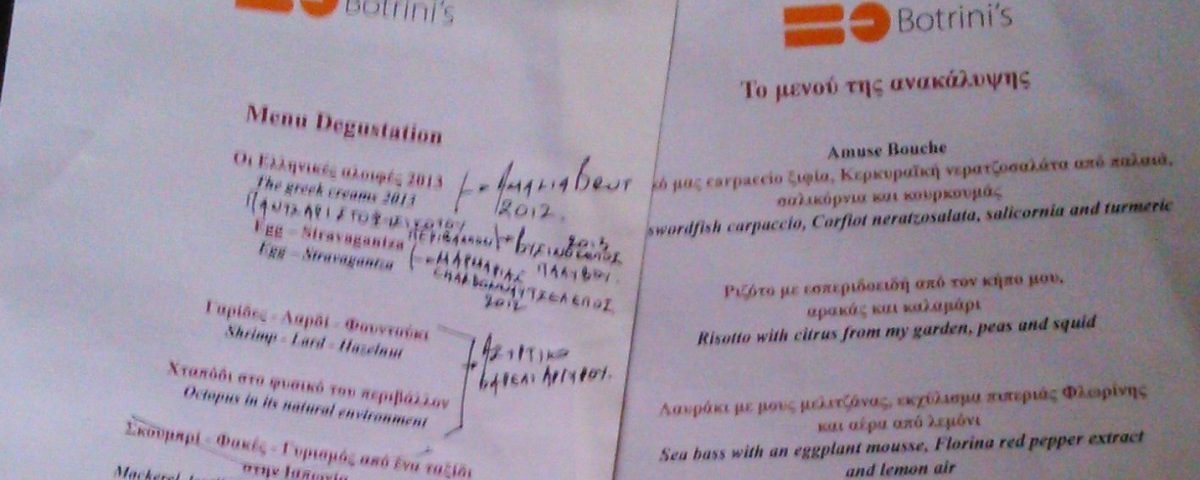 Botrini's
Menu Degustation
Οι Ελληνικές αλοιφές 2013
The greek creams 2013
2012.
Egg – Stravagantza
Egg – Stravagantza
2013
2012
Γαρίδες - Λαρδί - Φουντούκι
Shrimp - Lard - Hazelnut
Χταπόδι στο φυσικό του περιβάλλον
Octopus in its natural environment
Σκουμπρί - Φακές - Γυρισμός από ένα ταξίδι
στην Ιαπωνία
Mackerel,
Botrini's
Το μενού της ανακάλυψης
Amuse Bouche
κό μας carpaccio ξιφία, Κερκυραϊκή νερατζοσαλάτα από παλαιά,
σαλικόρνια και κουρκουμάς
swordfish carpaccio, Corfiot neratzosalata, salicornia and turmeric
Ριζότο με εσπεριδοειδή από τον κήπο μου,
αρακάς και καλαμάρι
Risotto with citrus from my garden, peas and squid
Λαυράκι με μους μελιτζάνας, εκχύλισμα πιπεριάς Φλωρίνης
και αέρα από λεμόνι
Sea bass with an eggplant mousse, Florina red pepper extract
and lemon air